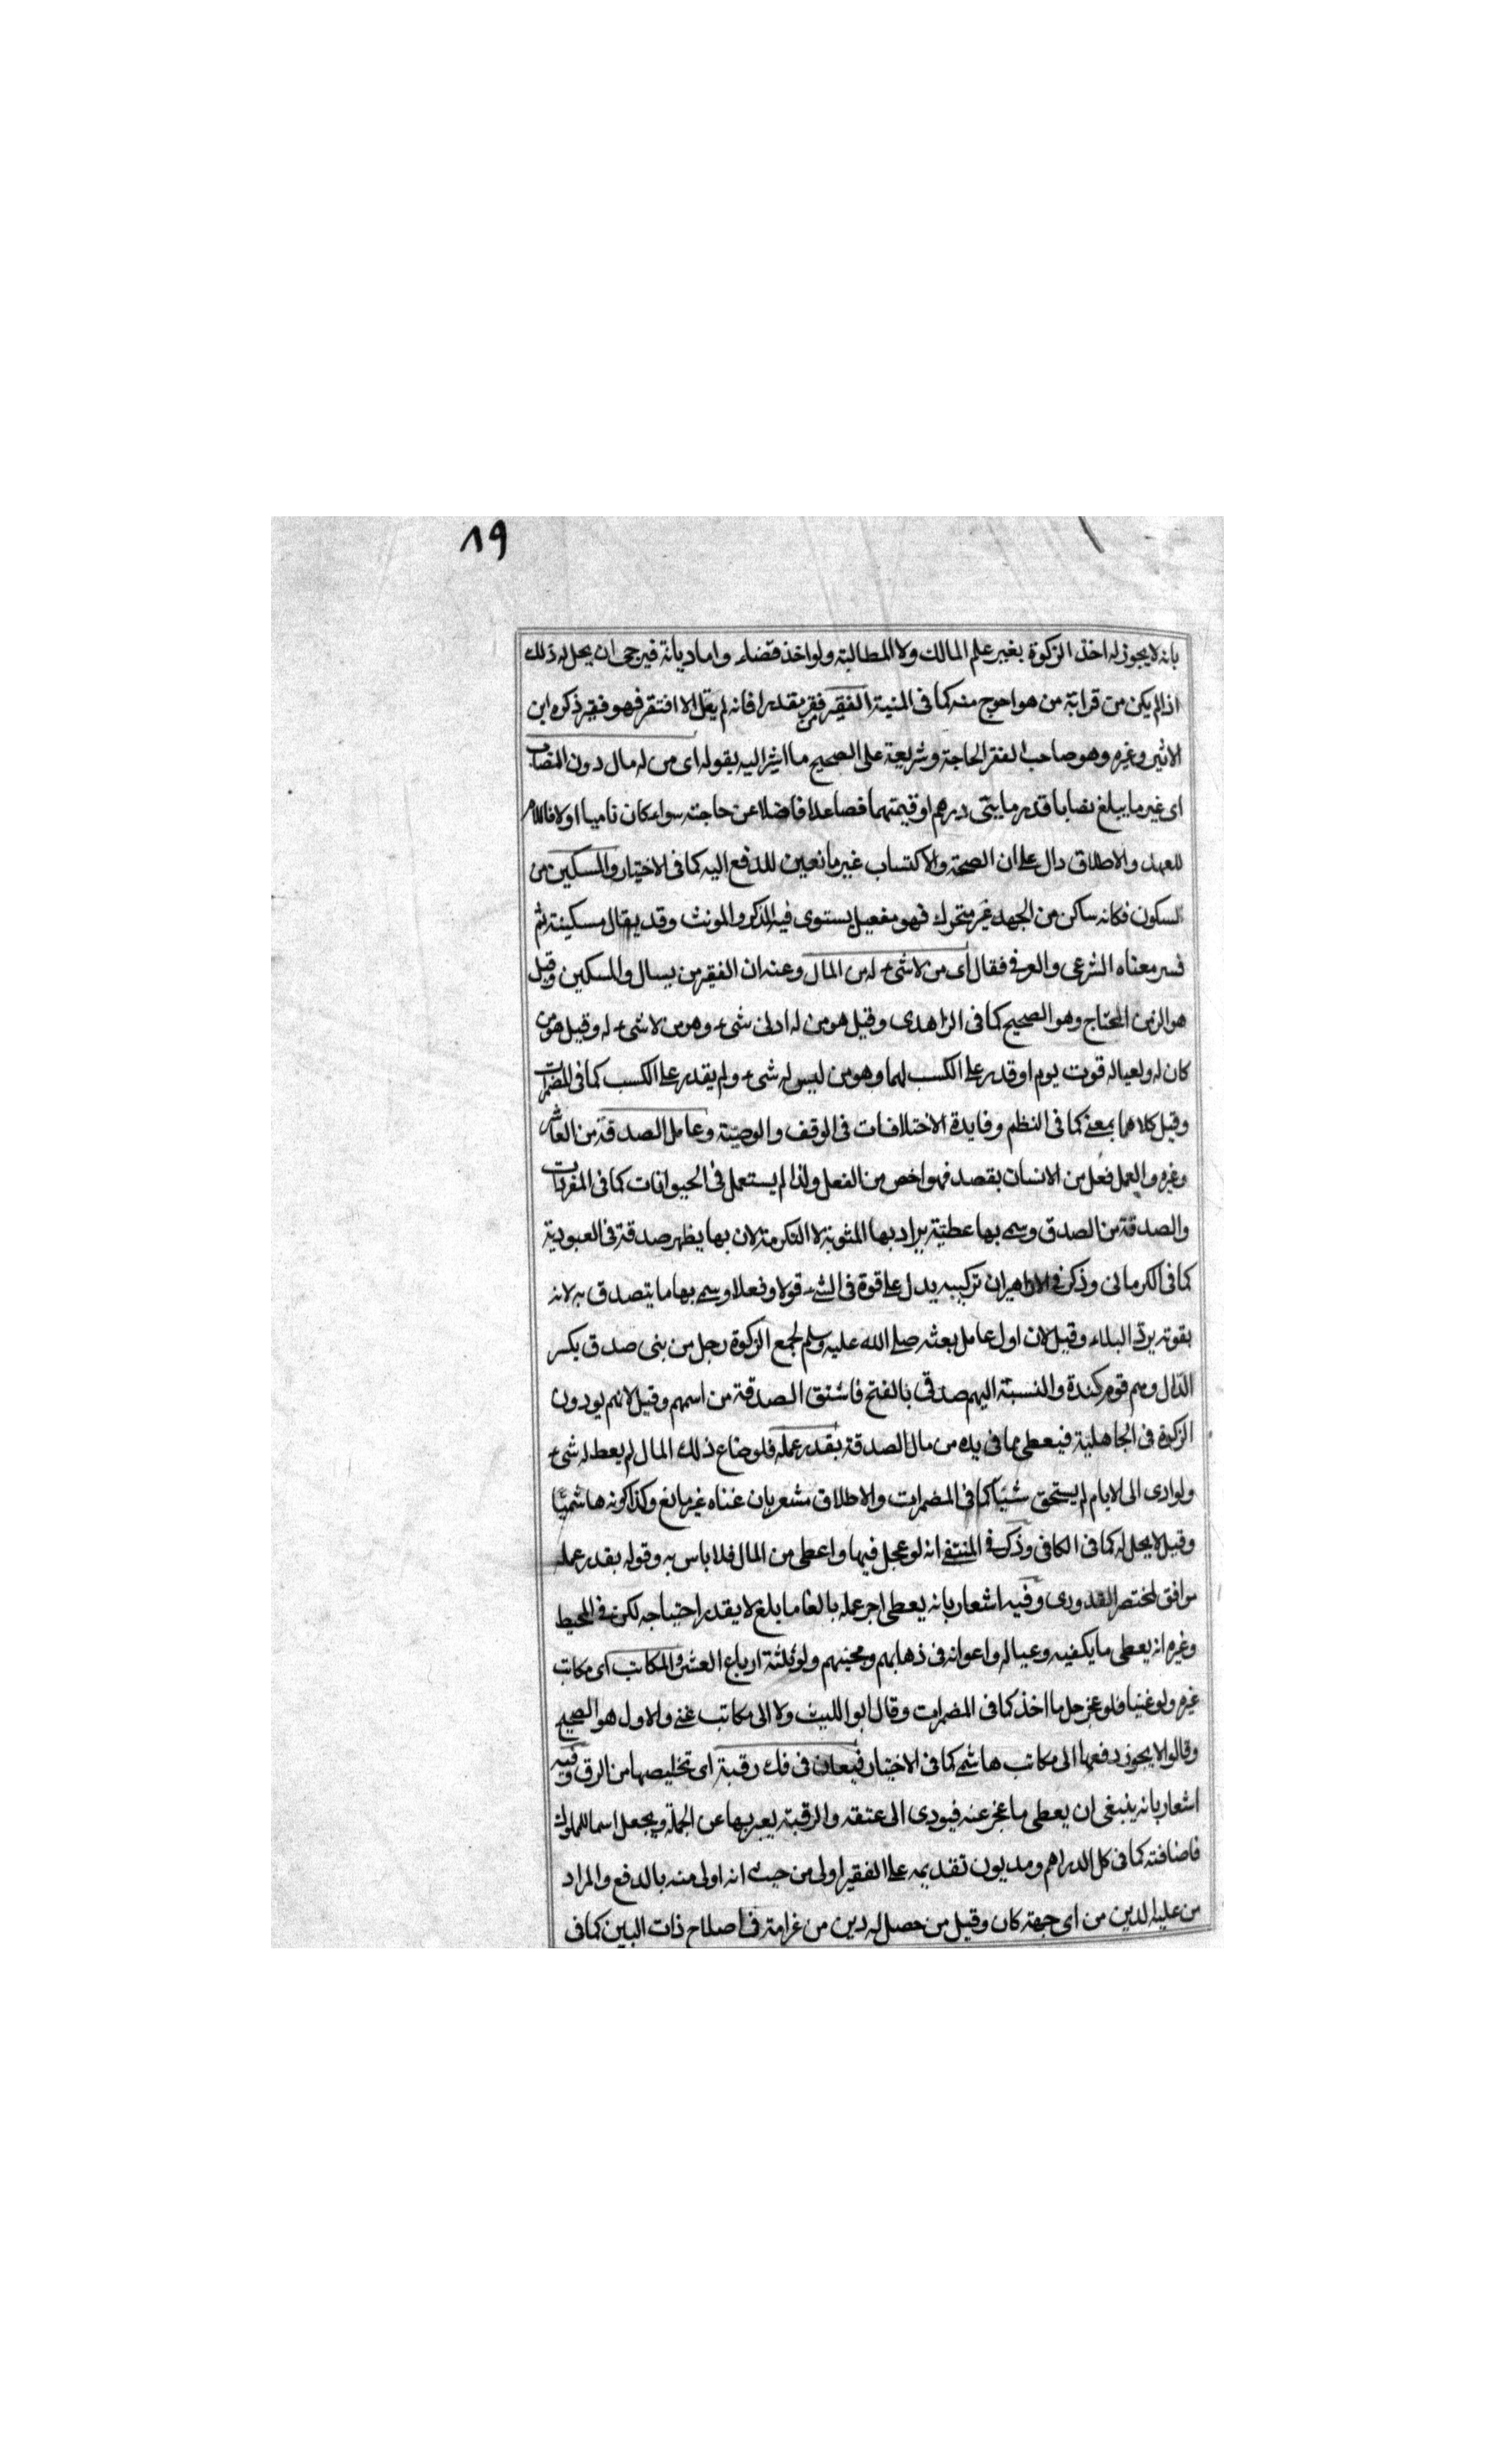 ١٩
بانه لا يجوز له اخذ الزكوة بغير علم المالك ولا المطالبة ولو اخذ قضاء واما ديانة فيرجى ان يحل له ذلك
اذا لم يكن من قرابة من هو احوج منه كما فى المنية الفقير من فقر يقدر افانه لم يقل الا افتقر فهو فقير ذكره ابن
الاثير وغيره وهو صاحب الفقر الحاجة وشريعة على الصحيح ما اشير اليه بقوله اى من له مال دون النصاب
اى غير ما يبلغ نصابا قدر مايتى درهم او قيمتهما فصاعدا فاضلا عن حاجته سواء كان ناميا اولا فاللام
للعهد والاطلاق دال على ان الصحة والاكتساب غير مانعين للدفع اليه كما فى الاختيار والمسكين من
السكون فكانه ساكن من الجهد غير متحرك فهو مفعيل يستوى فيه المذكر والمونث وقد يقال مسكينة ثم
فسر معناه الشرعى والعرفى فقال اى من لا شىء له من المال وعنه ان الفقير من يسال والمسكين وقيل
هو الزمن المحتاج وهو الصحيح كما فى الزاهدى وقيل هو من له ادنى شىء وهو من لا شىء له وقيل هو من
كان له ولعياله قوت يوم او قدر على الكسب لهما وهو من ليس له شىء ولم يقدر على الكسب كما فى المضمرات
وقيل كلاهما بمعنى كما فى النظم وفايدة الاختلافات فى الوقف والوصية وعامل الصدقة من العاشر
وغيره والعمل فعل من الانسان بقصد فهو اخص من الفعل ولذا لم يستعمل فى الحيوانات كما فى المفردات
والصدقة من الصدق وسمى بها عطية يراد بها المثوبة لا التكرمة لان بها يظهر صدقة فى العبودية
كما فى الكرمانى وذكر فى ان تركيبه يدل على قوة فى الشىء قولا وفعلا وسمى بها ما يتصدق به لانه
بقوته يرد البلاء وقيل لان اول عامل بعثه صلى الله عليه وسلم لجمع الزكوة رجل من بنى صدق بكسر
الدال وهم قوم كندة والنسبة اليهم صدقى بالفتح فاشتق الصدقة من اسمهم وقيل لانهم يودون
الزكوة فى الجاهلية فيعطى مما فى يده من مال الصدقة بقدر عمله فلو ضاع ذلك المال لم يعط له شىء
ولو ادى الى الايام لم يستحق شيئا كما فى المضمرات والاطلاق مشعر بان غناه غير مانع وكذا كونه هاشميا
وقيل لا يحل له كما فى الكافى وذكر فى المنتفى انه لو عجل فيها واعطى من المال فلا باس به وقوله بقدر عمله
موافق لمختصر القدورى وفيه اشعار بانه يعطى اجر عمله بالغا ما بلغ لا يقدر احتياجه لكن فى المحيط
وغيره انه يعطى ما يكفيه وعياله واعوانه فى ذهابهم ومجيئهم ولو ثلثة ارباع العشر والمكاتب اى مكاتب
غيره ولو غنيا فلو عجز حل ما اخذ كما فى المضمرات وقال ابو الليث ولا الى مكاتب غنى والاول هو الصحيح
وقالوا لا يجوز دفعها الى مكاتب هاشمى كما فى الاختيار فيعان فى فك رقبة اى تخليصها من الرق وفيه
اشعار بانه ينبغى ان يعطى ما عجز عنه فيودى الى عتقه والرقبة يعبر بها عن الجملة ويجعل اسما للمملوك
فاضافته كما فى كل الدراهم ومديون تقديمه على الفقير اولى من حيث انه اولى منه بالدفع والمراد
من عليه الدين من اى جهة كان وقيل من حصل له دين من غرامة فى اصلاح ذات البين كما فى